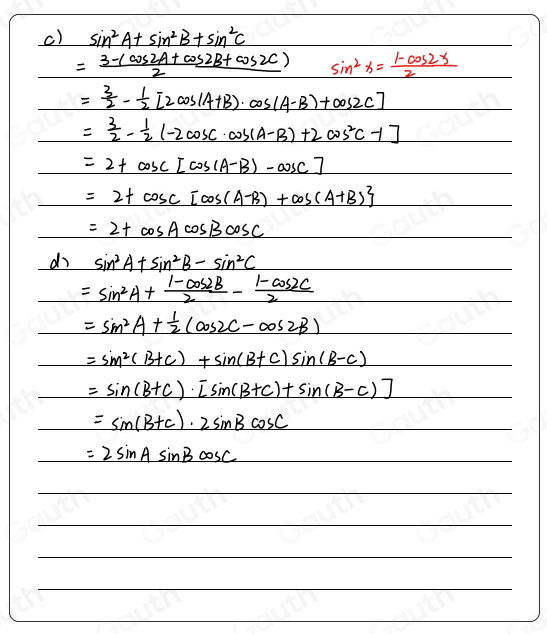 c) sin²A + sin²B + sin²C
= 3-(cos2A + cos2B + cos2C) / 2   sin²x = 1-cos2x / 2
= 3/2 - 1/2 [2cos(A+B)·cos(A-B)+cos2C]
= 3/2 - 1/2 (-2cosC·cos(A-B)+2cos²C-1]
= 2+ cosC [cos(A-B) - cosC]
= 2+ cosC [cos(A-B) + cos(A+B)}
= 2+ cosA cosB cosC
d) sin²A + sin²B - sin²C
= sin²A + 1-cos2B / 2 - 1-cos2C / 2
= sin²A + 1/2 (cos2C - cos2B)
= sin²(B+C) + sin(B+C) sin(B-C)
= sin(B+C)·[sin(B+C)+ sin(B-C)]
= sin(B+C)·2sinB cosC
= 2sinA sinB cosC